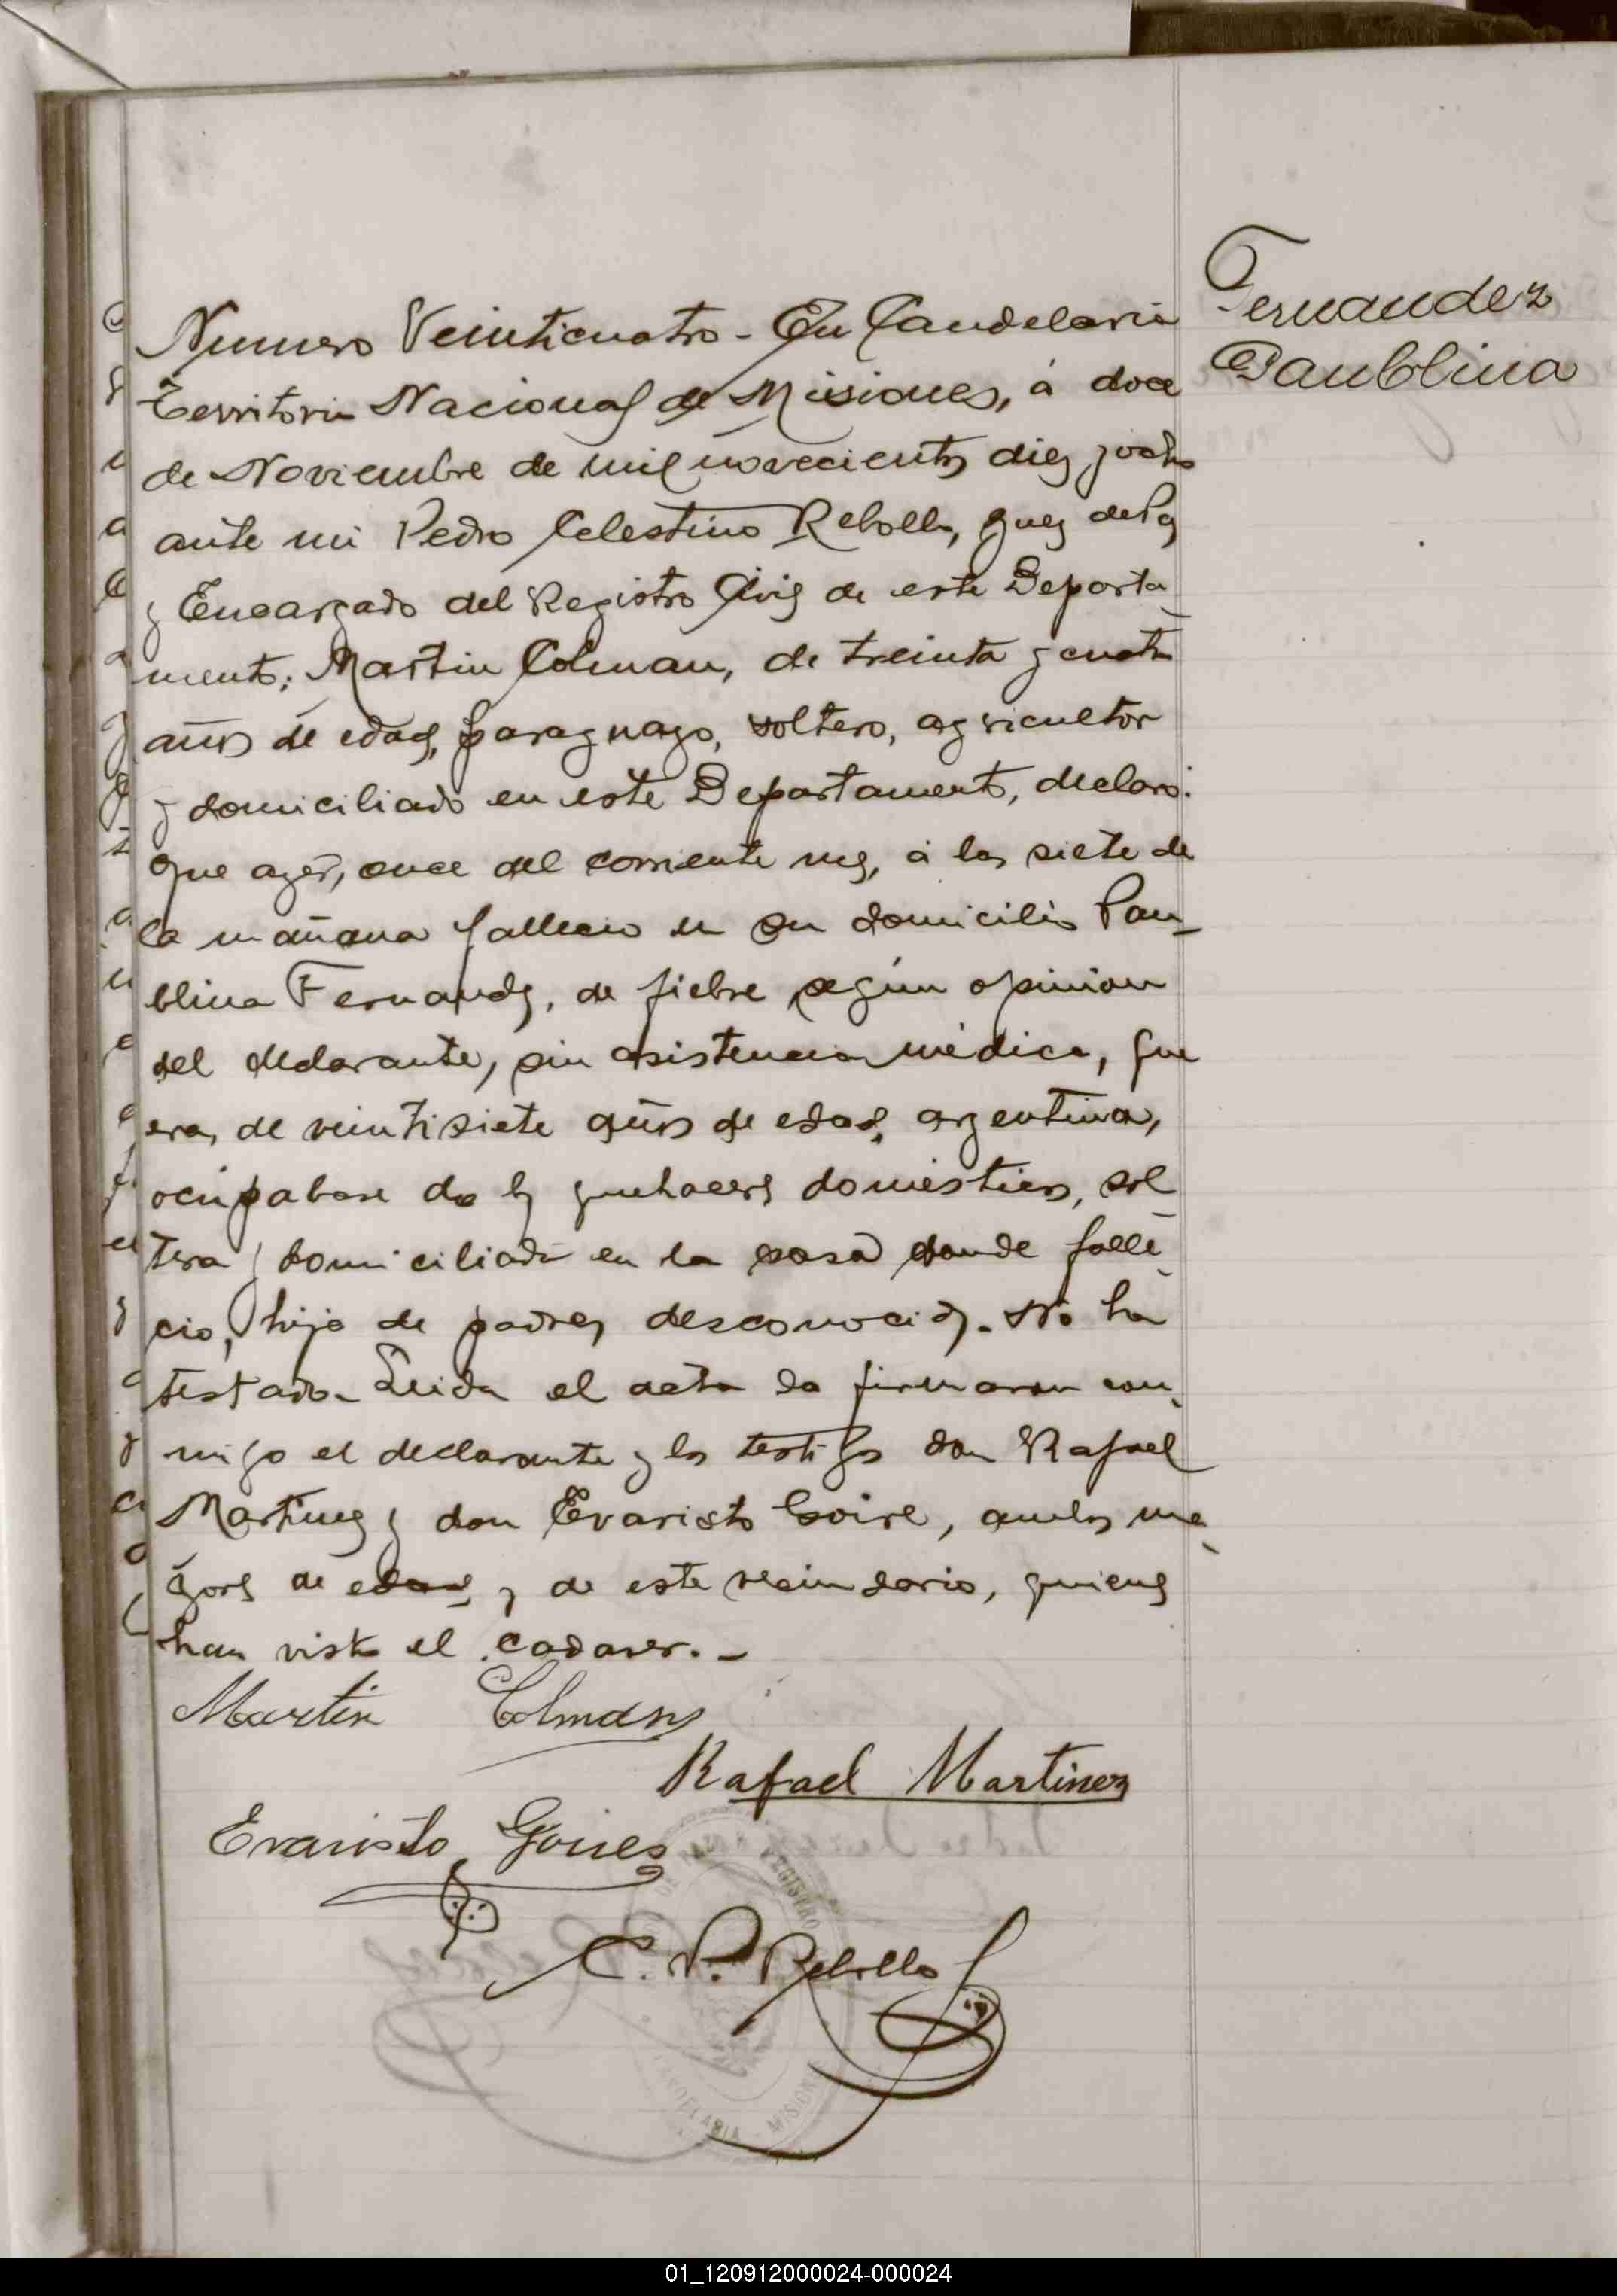 Fernandez
Paublina
Numero Veinticuatro - En Candelaria
Territorio Nacional de Misiones, á doce
de Noviembre de mil novecientos diez y ocho
ante mi Pedro Celestino Rebollo, Juez de Paz
y Encargado del Registro Civil de este Departa
mento; Martin Colman, de treinta y cuatro
años de edad, paraguayo, soltero, agricultor
y domiciliado en este Departamento, declaro:
Que ayer, once del corriente mes, á las siete de
la mañana fallecio en su domicilio Pau-
blina Fernandez, de fiebre según opinion
del declarante, sin asistencia médica, que
era, de veintisiete años de edad, argentina,
ocupabase de los quehaceres domésticos, sol
tera y domiciliada en la casa donde falle
cio, hija de padres desconocidos. No ha
testado. Leida el acta la firmaron con
migo el declarante y los testigos don Rafael
Martinez y don Evaristo Goire, ambos ma
yores de edad y de este vecindario, quienes
han visto el cadaver. -
Martin Colman
Rafael Martinez
Evaristo Goires
C. P. Rebollo
REGISTRO
CANDELARIA MISIONES
01_120912000024-000024